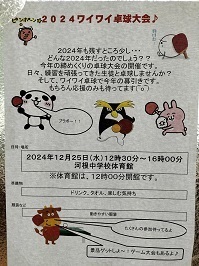 ピンポンパン♪2024ワイワイ卓球大会♪
2024年も残すところ少し・・・
どんな2024年だったのでしょう??
今年の締めくくりの卓球大会の開催です。
日々、練習を頑張ってきた生徒と卓球しませんか?
そして、ワイワイ卓球で今年の幕引きです。
もちろん応援のみも待ってます(^o^)
ブラボー!!
日時・場所
2024年12月25日(水)12時30分~16時00分
河根中学校体育館
※体育館は、12時00分開館です。
ドリンク、タオル、楽しむ気持ち
動きやすい服装
たくさんの参加待ってるよ
景品ゲットしよ~♪ゲーム大会もあるよ♪